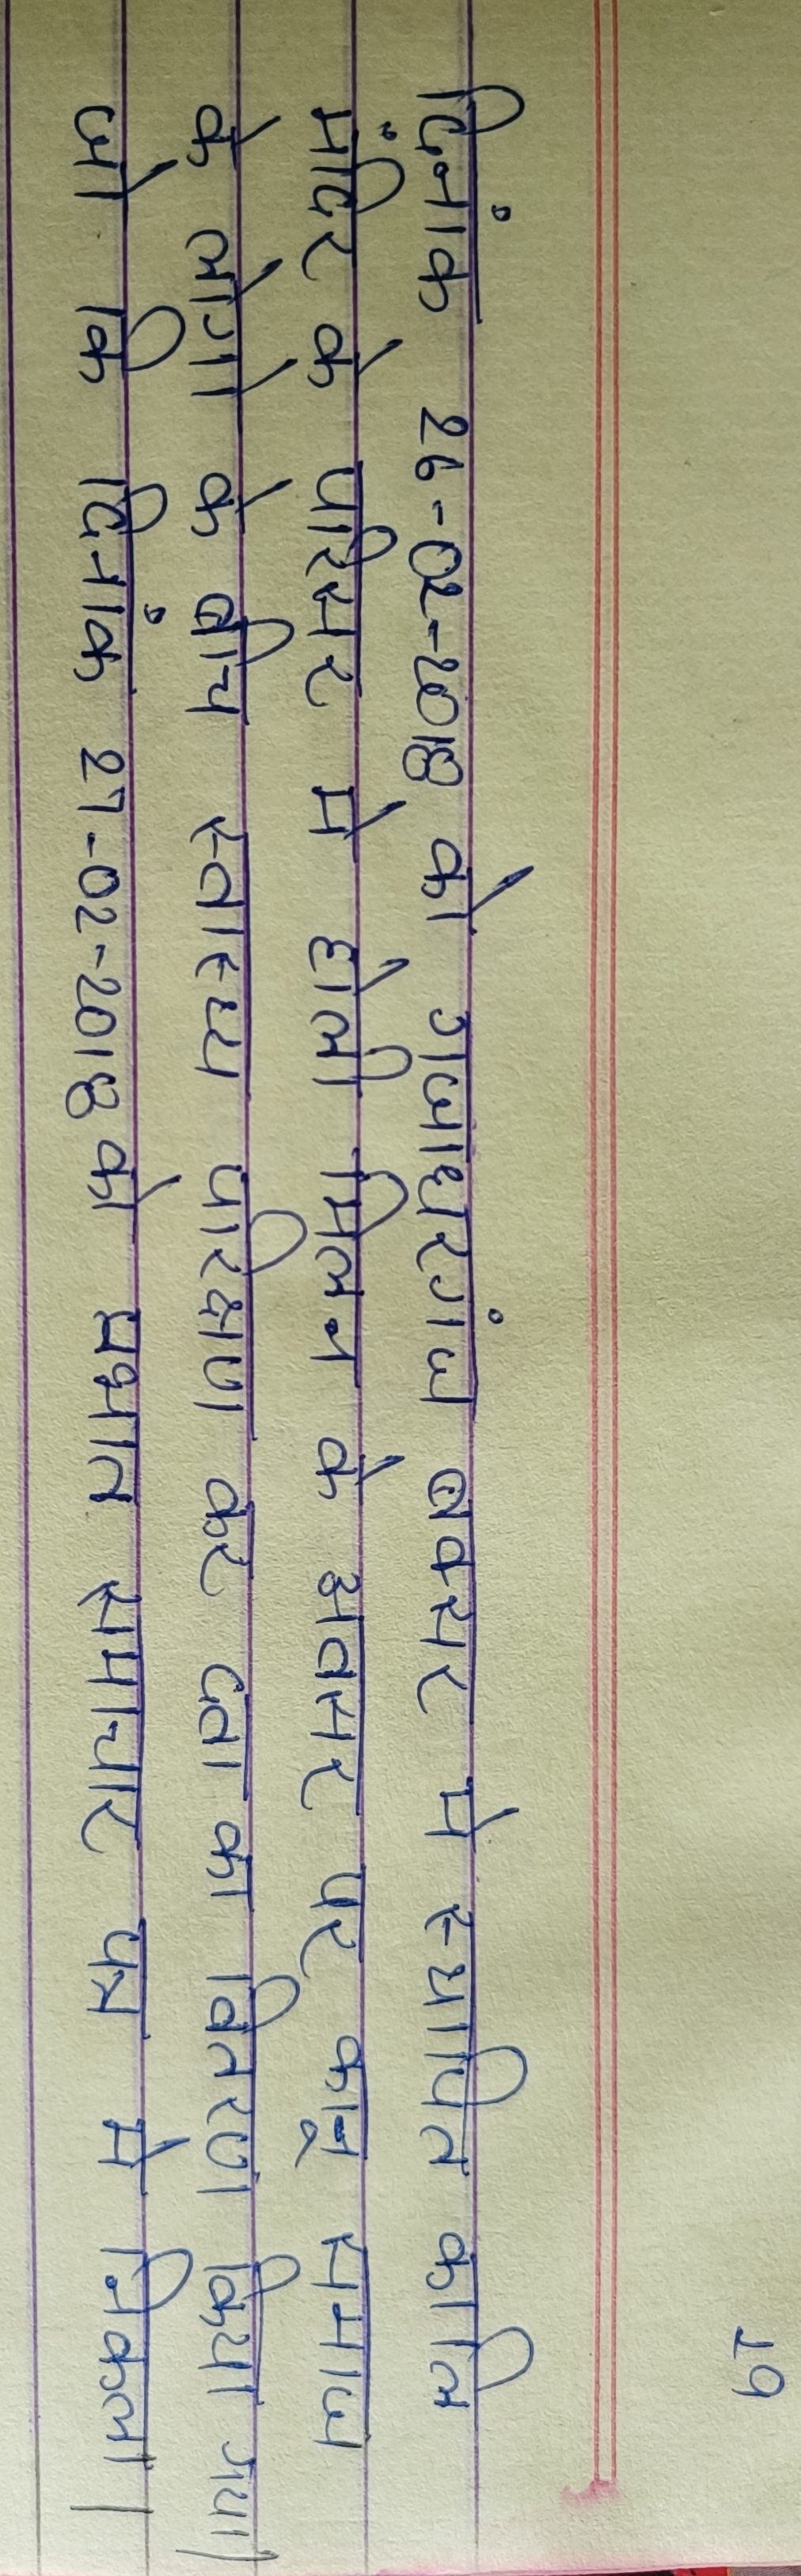 19
दिनांक 26-02-2018 को गजाधरगंज बक्सर मे स्थापित कालि
मंदिर के परिसर मे होली मिलन के अवसर पर कानू समाज
के लोगो के बीच स्वास्थ्य परिक्षण कर दवा का वितरण किया गया।
जो कि दिनांक 27-02-2018 को प्रभात समाचार पत्र मे निकला।